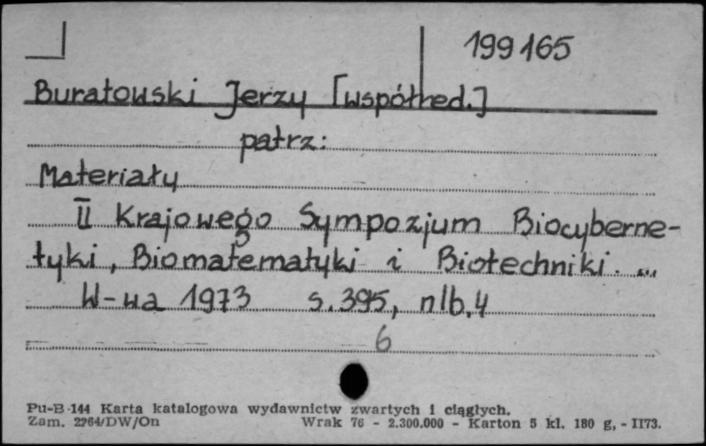 199165
Buratowski Jerzy [współred.]
patrz:
Materiały
II Krajowego Sympozjum Biocyberne-
tyki, Biomatematyki i Biotechniki. ...
W-wa 1973 s. 395, nlb. 4
6
Pu-B-144 Karta katalogowa wydawnictw zwartych i ciągłych.
Zam. 2264/DW/On Wrak 76 - 2.300.000 - Karton 5 kl. 180 g, - II73.